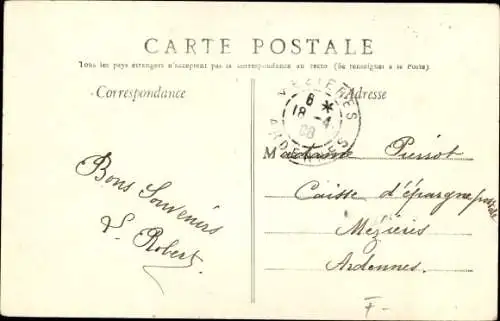 CARTE POSTALE
Tous les pays étrangers n'acceptent pas la correspondance au recto (Se renseigner à la Poste).
Correspondance
Adresse
MEZIERES
6 *
18 - 4
08
ARDENNES
Madame Pierrot
Caisse d'épargne postale
Mézières
Ardennes.
Bons Souvenirs
L. Robert.
F -